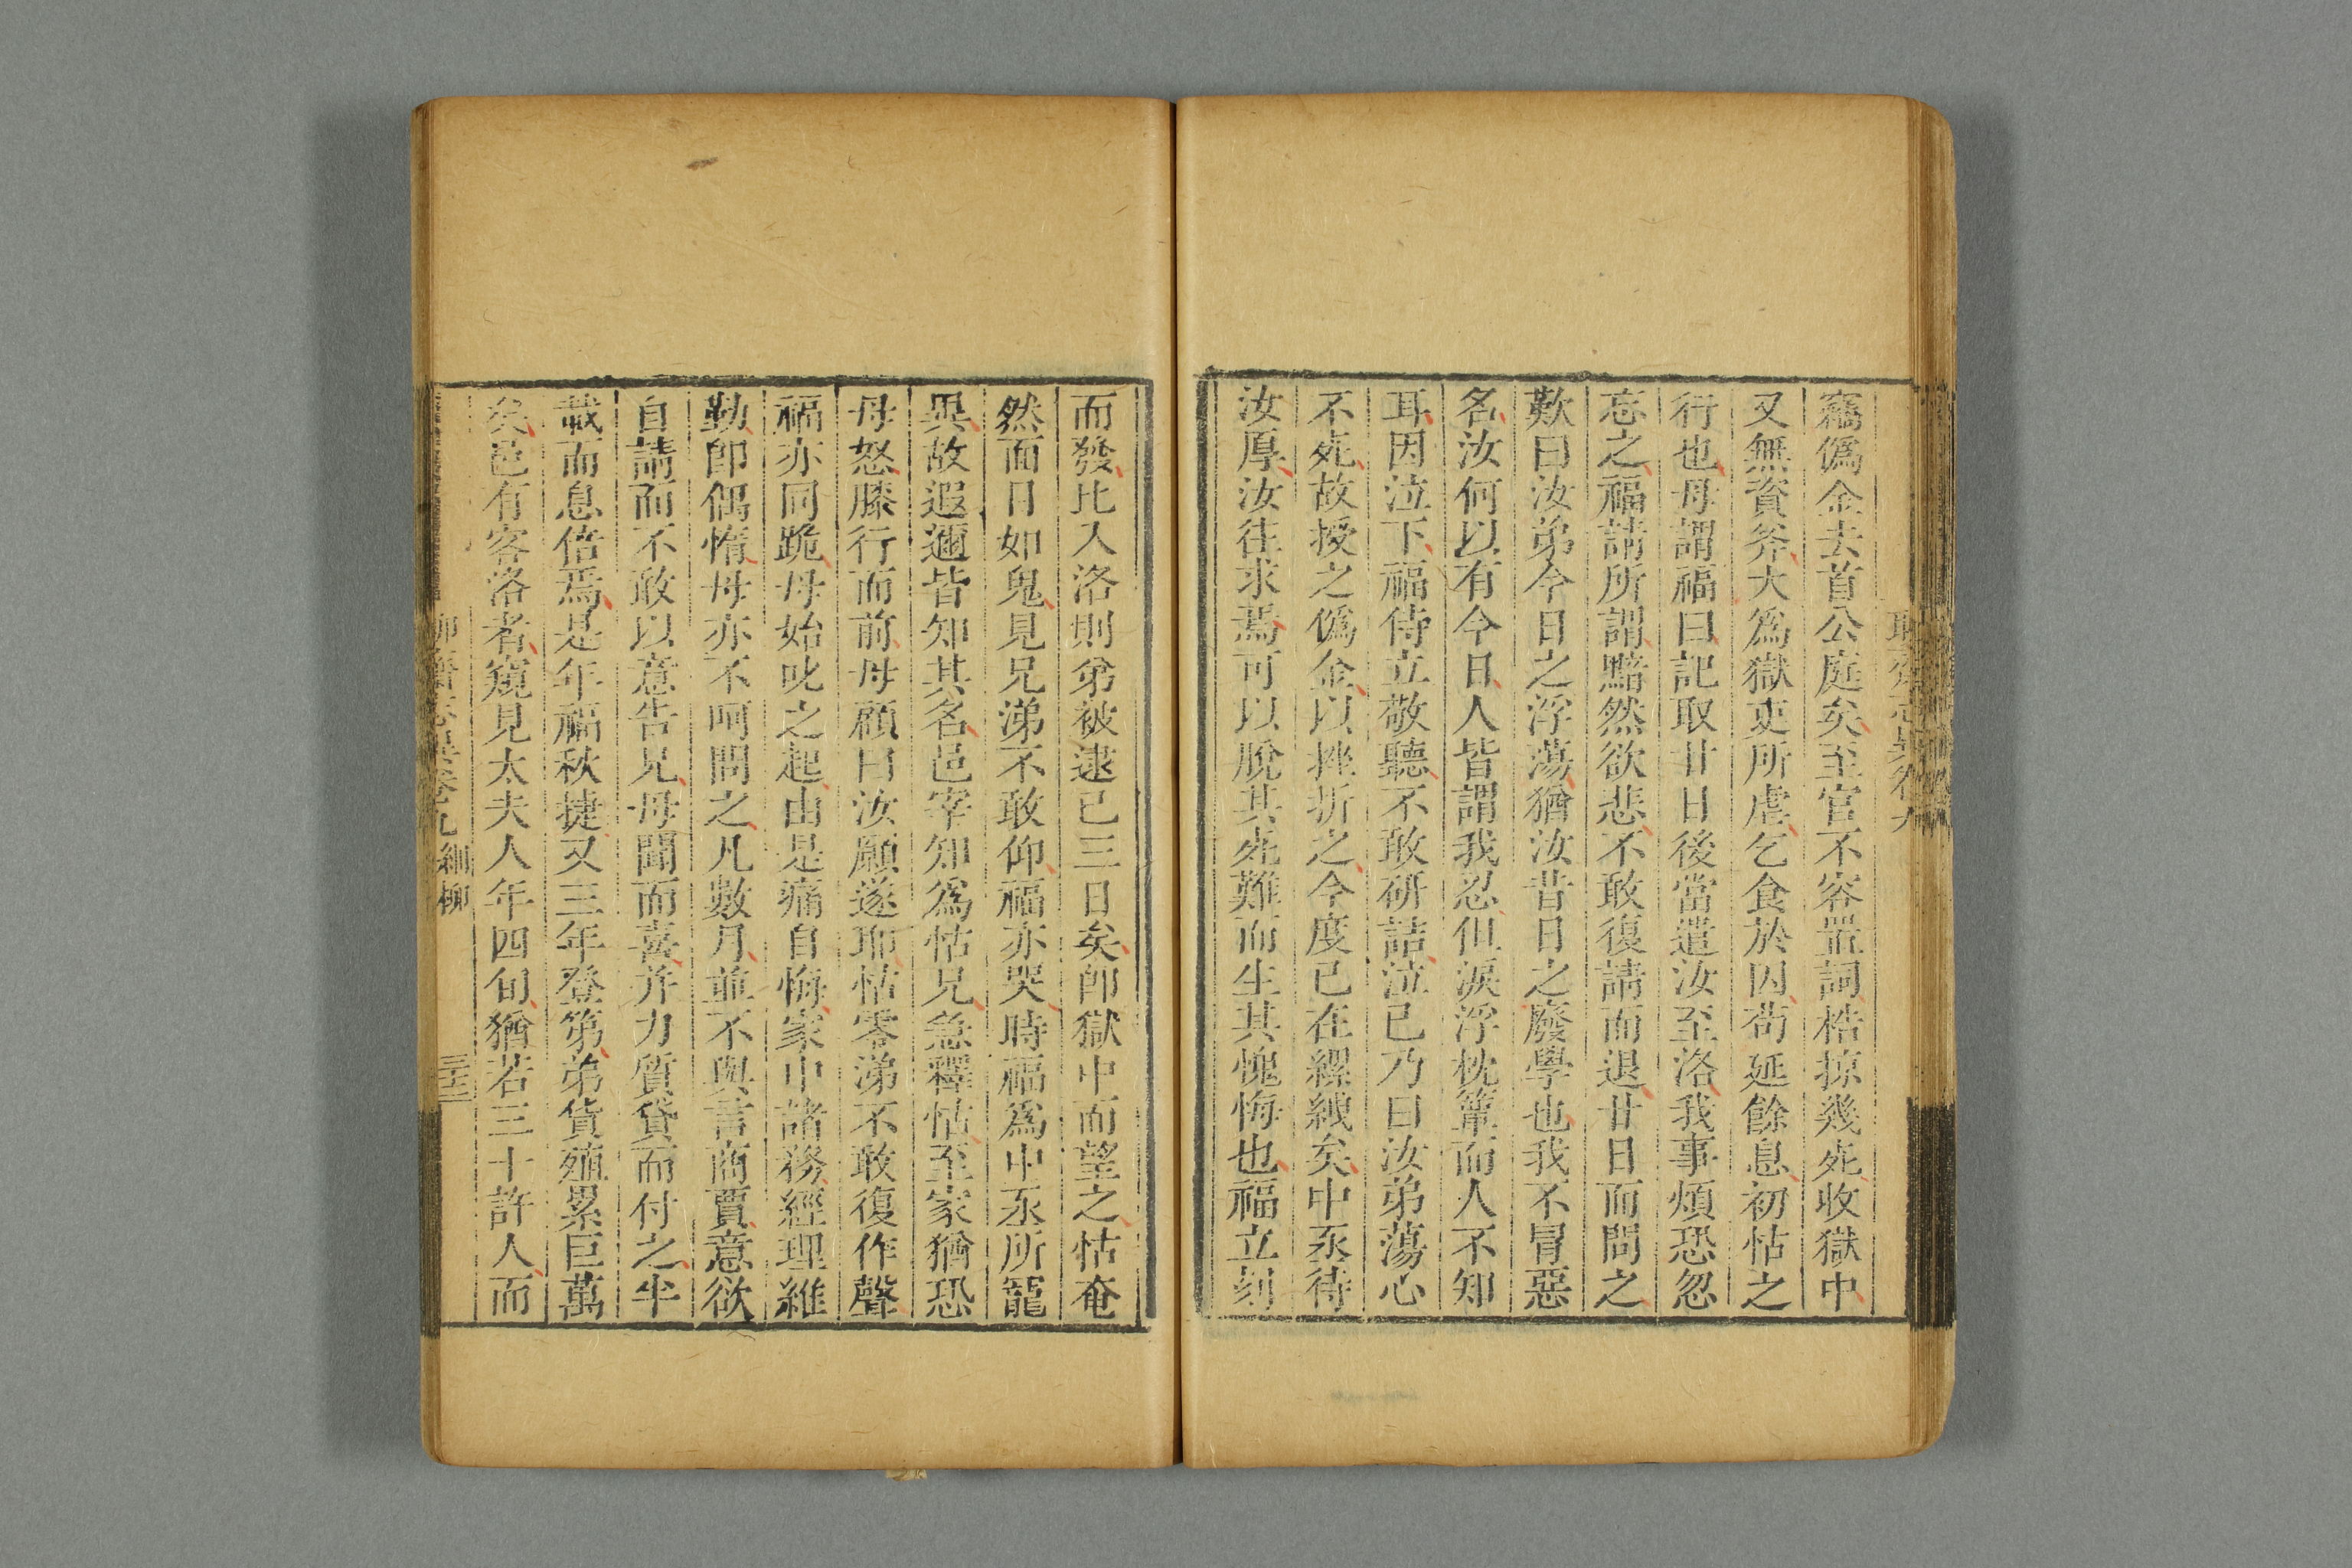 竊僞金去首公庭矣至官不容置詞梏掠幾死收獄中
又無資斧大爲獄吏所虐乞食於囚茍延餘息初怙之
行也母謂福曰記取廿日後當遣汝至洛我事煩恐忽
忘之福請所謂黯然欲悲不敢復請而退廿日而問之
歎曰汝弟今日之浮蕩猶汝昔日之廢學也我不冒惡
名汝何以有今日人皆謂我忍但淚浮枕簟而人不知
耳因泣下福侍立敬聽不敢硏詰泣已乃曰汝弟蕩心
不死故授之僞金以挫折之今度已在縲絏矣中丞待
汝厚汝往求焉可以脫其死難而生其愧悔也福立刻
而發比入洛則弟被逮已三日矣卽獄中而望之怙奄
然面目如鬼見兄涕不敢仰福亦哭時福爲中丞所寵
異故遐邇皆知其名邑宰知爲怙兄急釋怙至家猶恐
母怒膝行而前母顧曰汝願遂耶怙零涕不敢復作聲
福亦同跪母始叱之起由是痛自悔家中諸務經理維
勤卽偶惰母亦不呵問之凡數月並不與言商賈意欲
自請而不敢以意告兄母聞而喜并力質貸而付之半
載而息倍焉是年福秋捷又三年登第弟貨殖累巨萬
矣邑有客洛者窺見太夫人年四旬猶若三十許人而
細柳